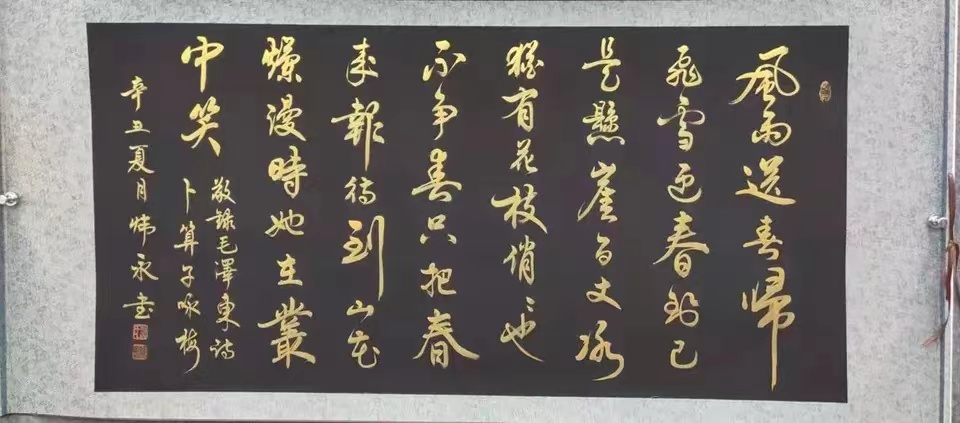 風雨送春歸
飛雪迎春到已
是懸崖百丈冰
猶有花枝俏〻也
不争春只把春
来報待到山花
爛漫時她在叢
中笑
敬錄毛澤東詩
卜算子咏梅
辛丑夏月炜永書